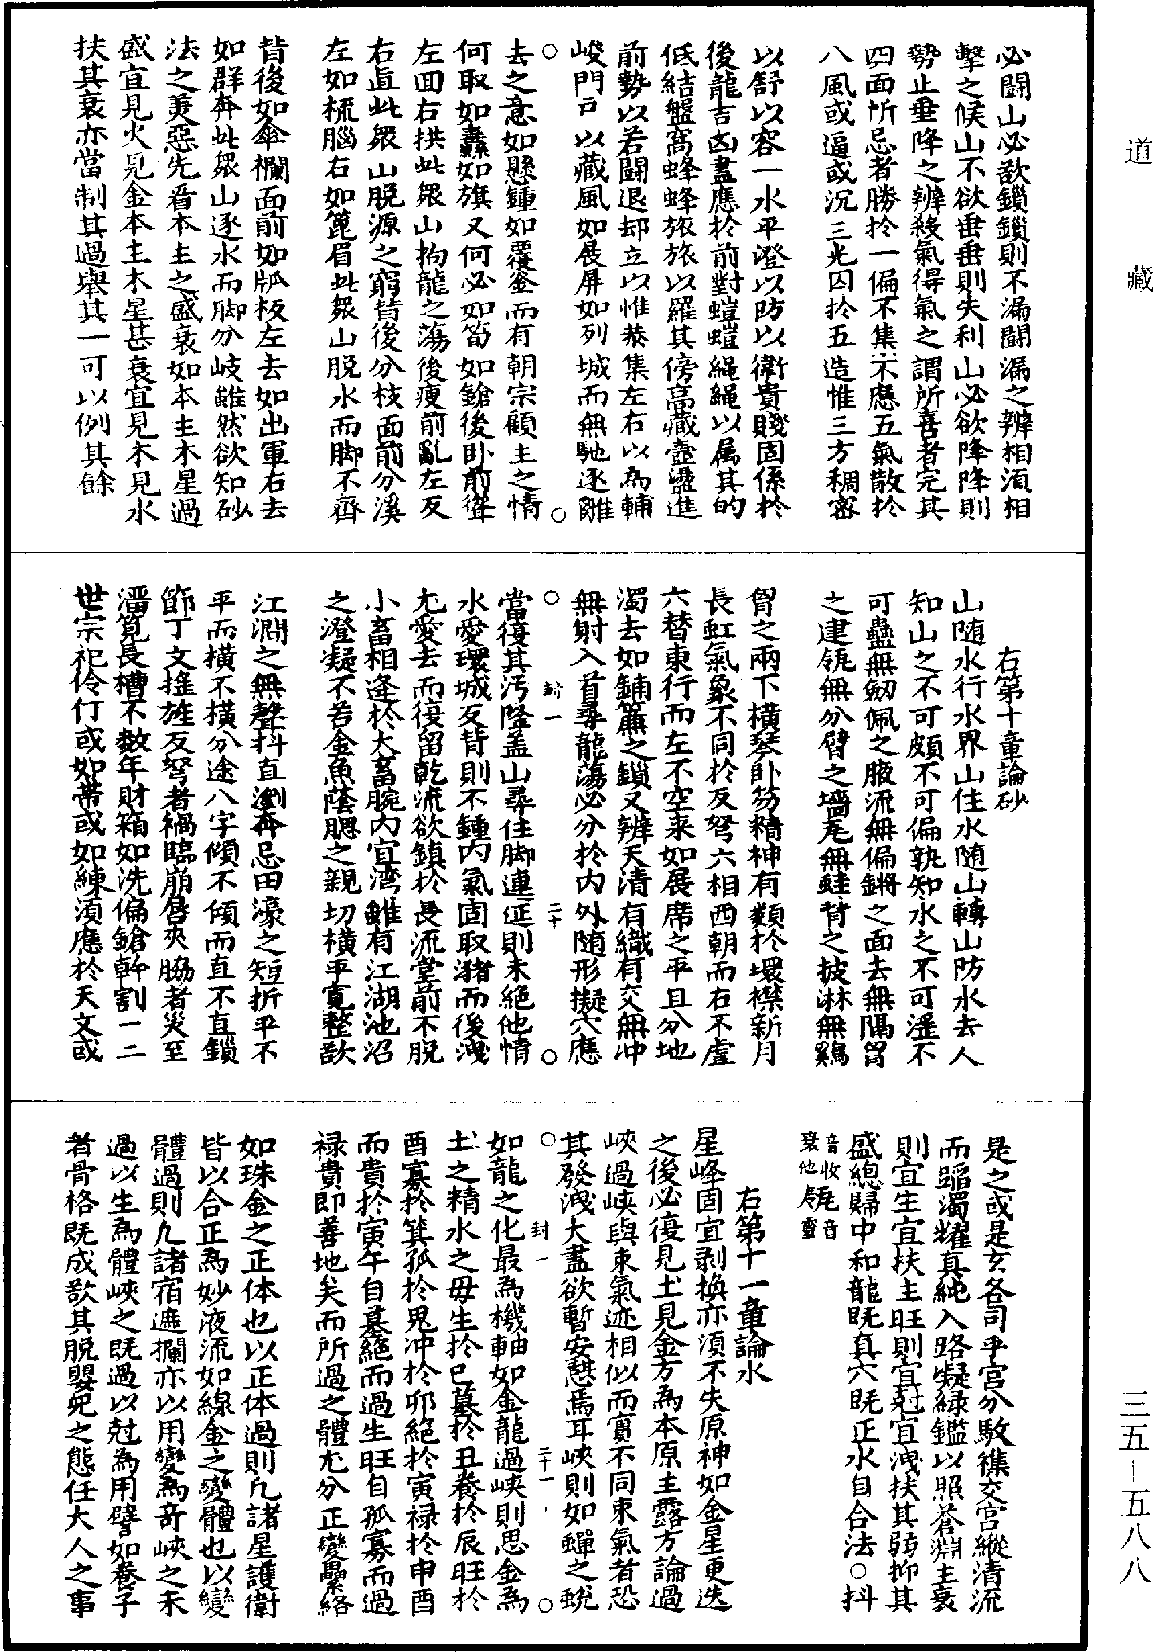 道藏
必鬪山必欲鎖鎖則不漏鬪漏之辨相湏相
擊之候山不欲垂垂則失利山必欲降降則
勢止垂降之辨緩氣得氣之謂所喜者完其
四面所忌者勝於一偏不集不應五氣散於
八風或逼或沉三光囚於五造惟三方稠密
以舒以容一水平澄以防以衛貴賤固係於
後龍吉凶盡應於前對螘螘繩繩以属其的
低結盤窩蜂蜂旅旅以羅其傍高藏壼盝進
前勢以若鬪退却立以惟恭集左右以為輔
峻門戸以藏風如展屏如列城而無馳逐離
去之意如懸鍾如覆釜而有朝宗顧主之情
何取如纛如旗又何必如笋如鎗後卧前聳
左囬右拱此㒮山拘龍之蕩後瘦前亂左反
右直此㒮山脫源之窮背後分枝面前分溪
左如梳腦右如篦眉此㒮山脫水而脚不齊
背後如傘欄面前如牀板左去如出軍右去
如群奔此㒮山逐水而脚分岐雖然欲知砂
法之美惡先看本主之盛衰如本主木星過
盛宜見火見金本主木星甚衰宜見木見水
扶其衰亦當制其過舉其一可以例其餘
右第十章論砂
山随水行水界山住水随山轉山防水去人
知山之不可頗不可偏孰知水之不可溼不
可蠱無劒佩之腋流無偏鏘之面去無隔胷
之建瓴無分臂之墻尾無鮭背之披淋無鷄
胷之兩下橫琴卧笏精神有類於環襟新月
長虹氣象不同於反弩六相西朝而右不虛
六替東行而左不空来如展席之平且分地
濁去如鋪簾之鎖又辨天清有織有交無冲
無射入首尋龍蕩必分於内外随形擬穴應
當復其汚隆盖山尋住脚連延則未絕他情
水愛環城反背則不鍾内氣固取瀦而後洩
尤愛去而復留乾流欲鎮於長流堂前不脫
小畜相逢於大畜腕内宜湾雖有江湖池沼
之澄凝不若金魚蔭腮之親切橫平寬整欲
江澗之無聲抖直溜奔忌田濠之短折平不
平而橫不橫分途八字傾不傾而直不直鎖
節丁文搖旌反弩者禍臨崩唇夾脇者災至
溍筧長槽不数年財箱如洗偏鎗幹割一二
世宗祀伶仃或如帶或如練湏應於天文或
是之或是玄各司乎宫分敺襍交宫縱清流
而蹈濁耀真純入路凝緑鑑以照蒼淵主衰
則宜生宜扶主旺則宜尅宜洩扶其弱抑其
盛總歸中和龍既真穴既正水自合法○抖
音收尾音
右第十一章論水
星峰固宜剥換亦湏不失原神如金星更迭
之後必復見土見金方為本原主露方論過
峽過峽與束氣迹相似而實不同束氣者恐
其發洩大盡欲暫安憇焉耳峽則如蟬之蛻
如龍之化最為機軸如金龍過峽則思金為
土之精水之毋生於巳墓於丑養於辰旺於
酉寡於箕孤於鬼冲於卯絕於寅禄於申酉
而貴於寅午自墓絕而過生旺自孤寡而過
禄貴即善地矣而所過之體尤分正變纍絡
如珠金之正体也以正体過則凢諸星護衛
皆以合正為妙液流如線金之變體也以變
體過則凢諸宿遮攔亦以用變為奇峽之未
過以生為體峽之既過以尅為用譬如養子
者骨格既成欲其脫嬰兒之態任大人之事
三五－五八八